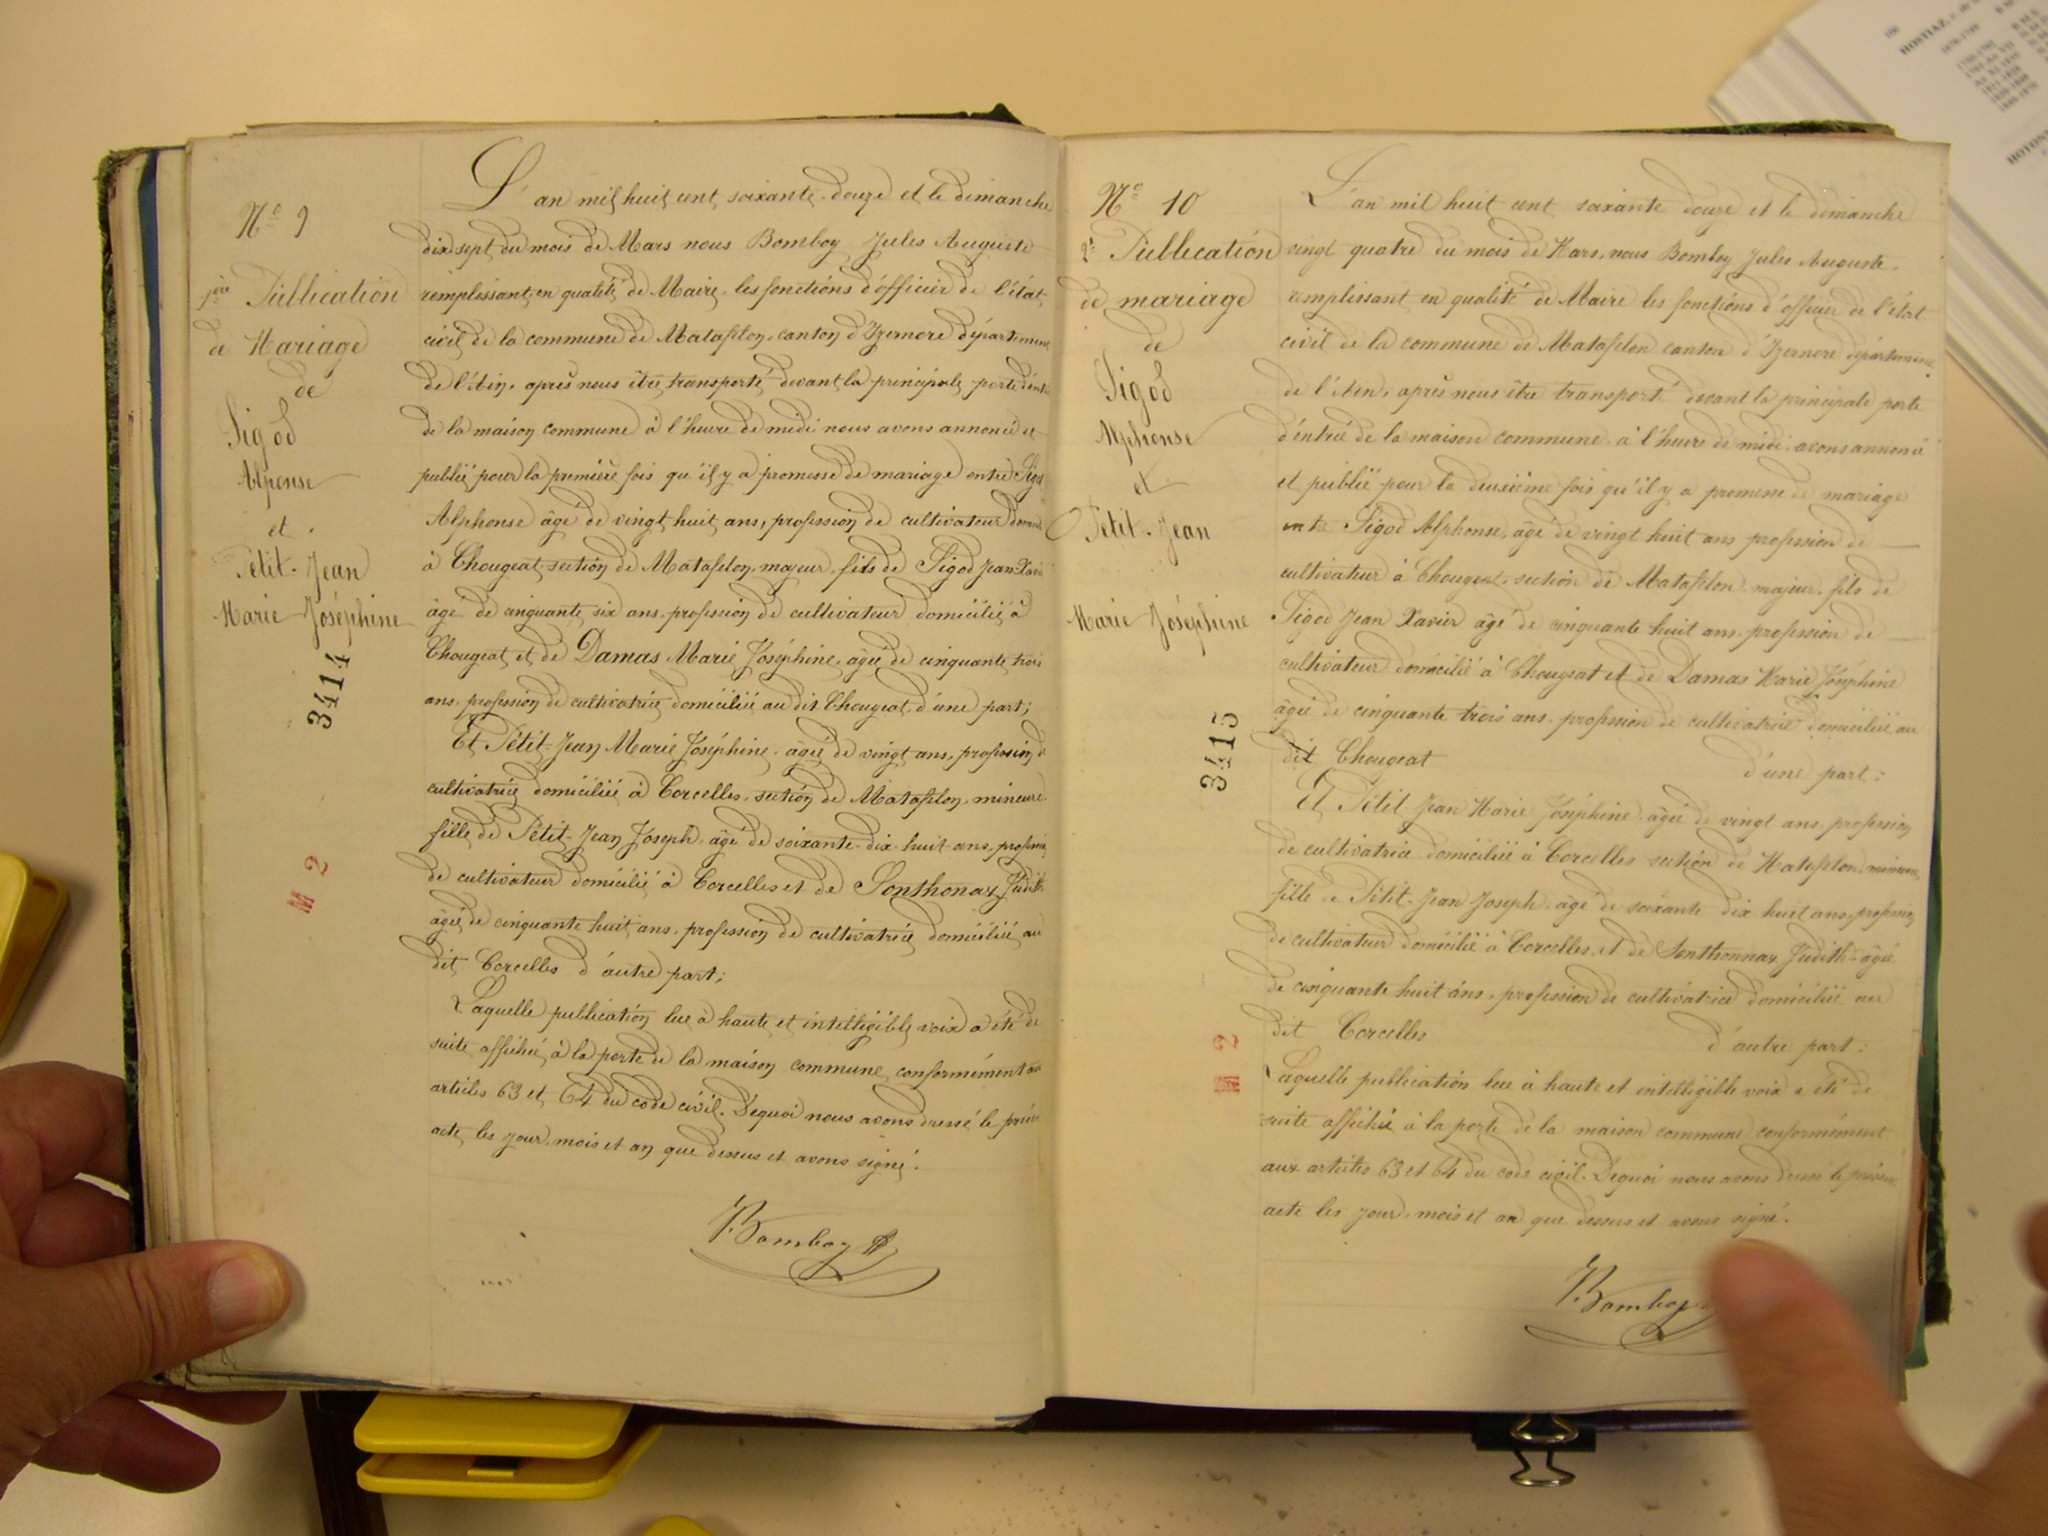 Nº 9
1ère Publication
de Mariage
de
Pigod
Alponse
et
Petit-Jean
Marie Joséphine
3414
M 2
L'an mil huit cent soixante-douze et le dimanche
dix sept du mois de Mars nous Bomboy Jules Auguste
remplissant en qualité de Maire les fonctions d'officier de l'état
civil de la commune de Matafelon, canton d'Izernore département
de l'Ain, après nous être transporté devant la principale porte d'entrée
de la maison commune à l'heure de midi nous avons annoncé et
publié pour la première fois qu'il y a promesse de mariage entre Pigod
Alphonse âgé de vingt huit ans, profession de cultivateur
à Chougeat section de Matafelon, majeur, fils de Pigod Jean Xavier
âgé de cinquante six ans, profession de cultivateur domicilié à
Chougeat et de Damas Marie Joséphine, âgée de cinquante trois
ans, profession de cultivatrice domiciliée au dit Chougeat, d'une part;
Et Petit-Jean Marie Joséphine, âgée de vingt ans, profession de
cultivatrice domiciliée à Corcelles, section de Matafelon, mineure,
fille de Petit-Jean Joseph, âgé de soixante-dix-huit ans, profession
de cultivateur domicilié à Corcelles et de Sonthonax Judith
âgée de cinquante huit ans, profession de cultivatrice domiciliée au
dit Corcelles d'autre part;
Laquelle publication lue à haute et intelligible voix a été de
suite affichée à la porte de la maison commune conformément aux
articles 63 et 64 du code civil. Dequoi nous avons dressé le présent
acte les jour, mois et an que dessus et avons signé.
Bomboy
Nº 10
2e Publication
de mariage
de
Pigod
Alphonse
et
Petit-Jean
Marie Joséphine
3415
M 2
L'an mil huit cent soixante douze et le dimanche
vingt quatre du mois de Mars, nous Bomboy Jules Auguste,
remplissant en qualité de Maire les fonctions d'officier de l'état
civil de la commune de Matafelon canton d'Izernore département
de l'Ain, après nous être transporté devant la principale porte
d'entrée de la maison commune à l'heure de midi avons annoncé
et publié pour la deuxième fois qu'il y a promesse de mariage
entre Pigod Alphonse, âgé de vingt huit ans profession de
cultivateur à Chougeat, section de Matafelon majeur, fils de
Pigod Jean Xavier âgé de cinquante huit ans, profession de
cultivateur domicilié à Chougeat et de Damas Marie Joséphine
âgée de cinquante trois ans, profession de cultivatrice domiciliée au
dit Chougeat d'une part;
Et Petit Jean Marie Joséphine âgée de vingt ans, profession
de cultivatrice domiciliée à Corcelles section de Matafelon mineure,
fille de Petit-Jean Joseph, âgé de soixante dix huit ans, profession
de cultivateur domicilié à Corcelles et de Sonthonnax Judith âgée
de cinquante huit ans, profession de cultivatrice domiciliée au
dit Corcelles d'autre part;
Laquelle publication lue à haute et intelligible voix a été de
suite affichée à la porte de la maison commune conformément
aux articles 63 et 64 du code civil. Dequoi nous avons dressé le présent
acte les jour, mois et an que dessus et avons signé.
Bomboy